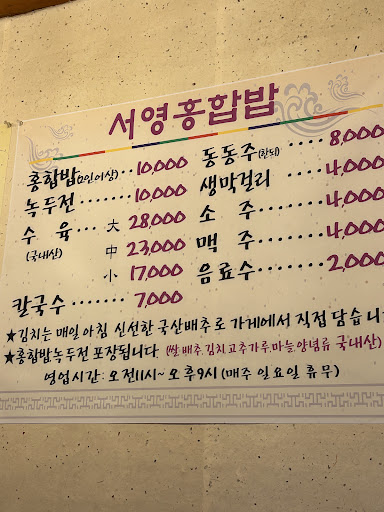 서영홍합밥
홍합밥(2인이상) ·· 10,000
녹두전 ······· 10,000
수 육 ··· 大 28,000
(국내산) 中 23,000
小 17,000
칼국수 ······· 7,000
동동주(한되) ·· 8,000
생막걸리 ···· 4,000
소 주 ···· 4,000
맥 주 ···· 4,000
음료수 ····· 2,000
★김치는 매일아침 신선한 국산배추로 가게에서 직접 담습니
★홍합밥녹두전 포장됩니다 (쌀.배추.김치고추가루마늘양념류 국내산)
영업시간: 오전11시~오후9시 (매주 일요일 휴무)